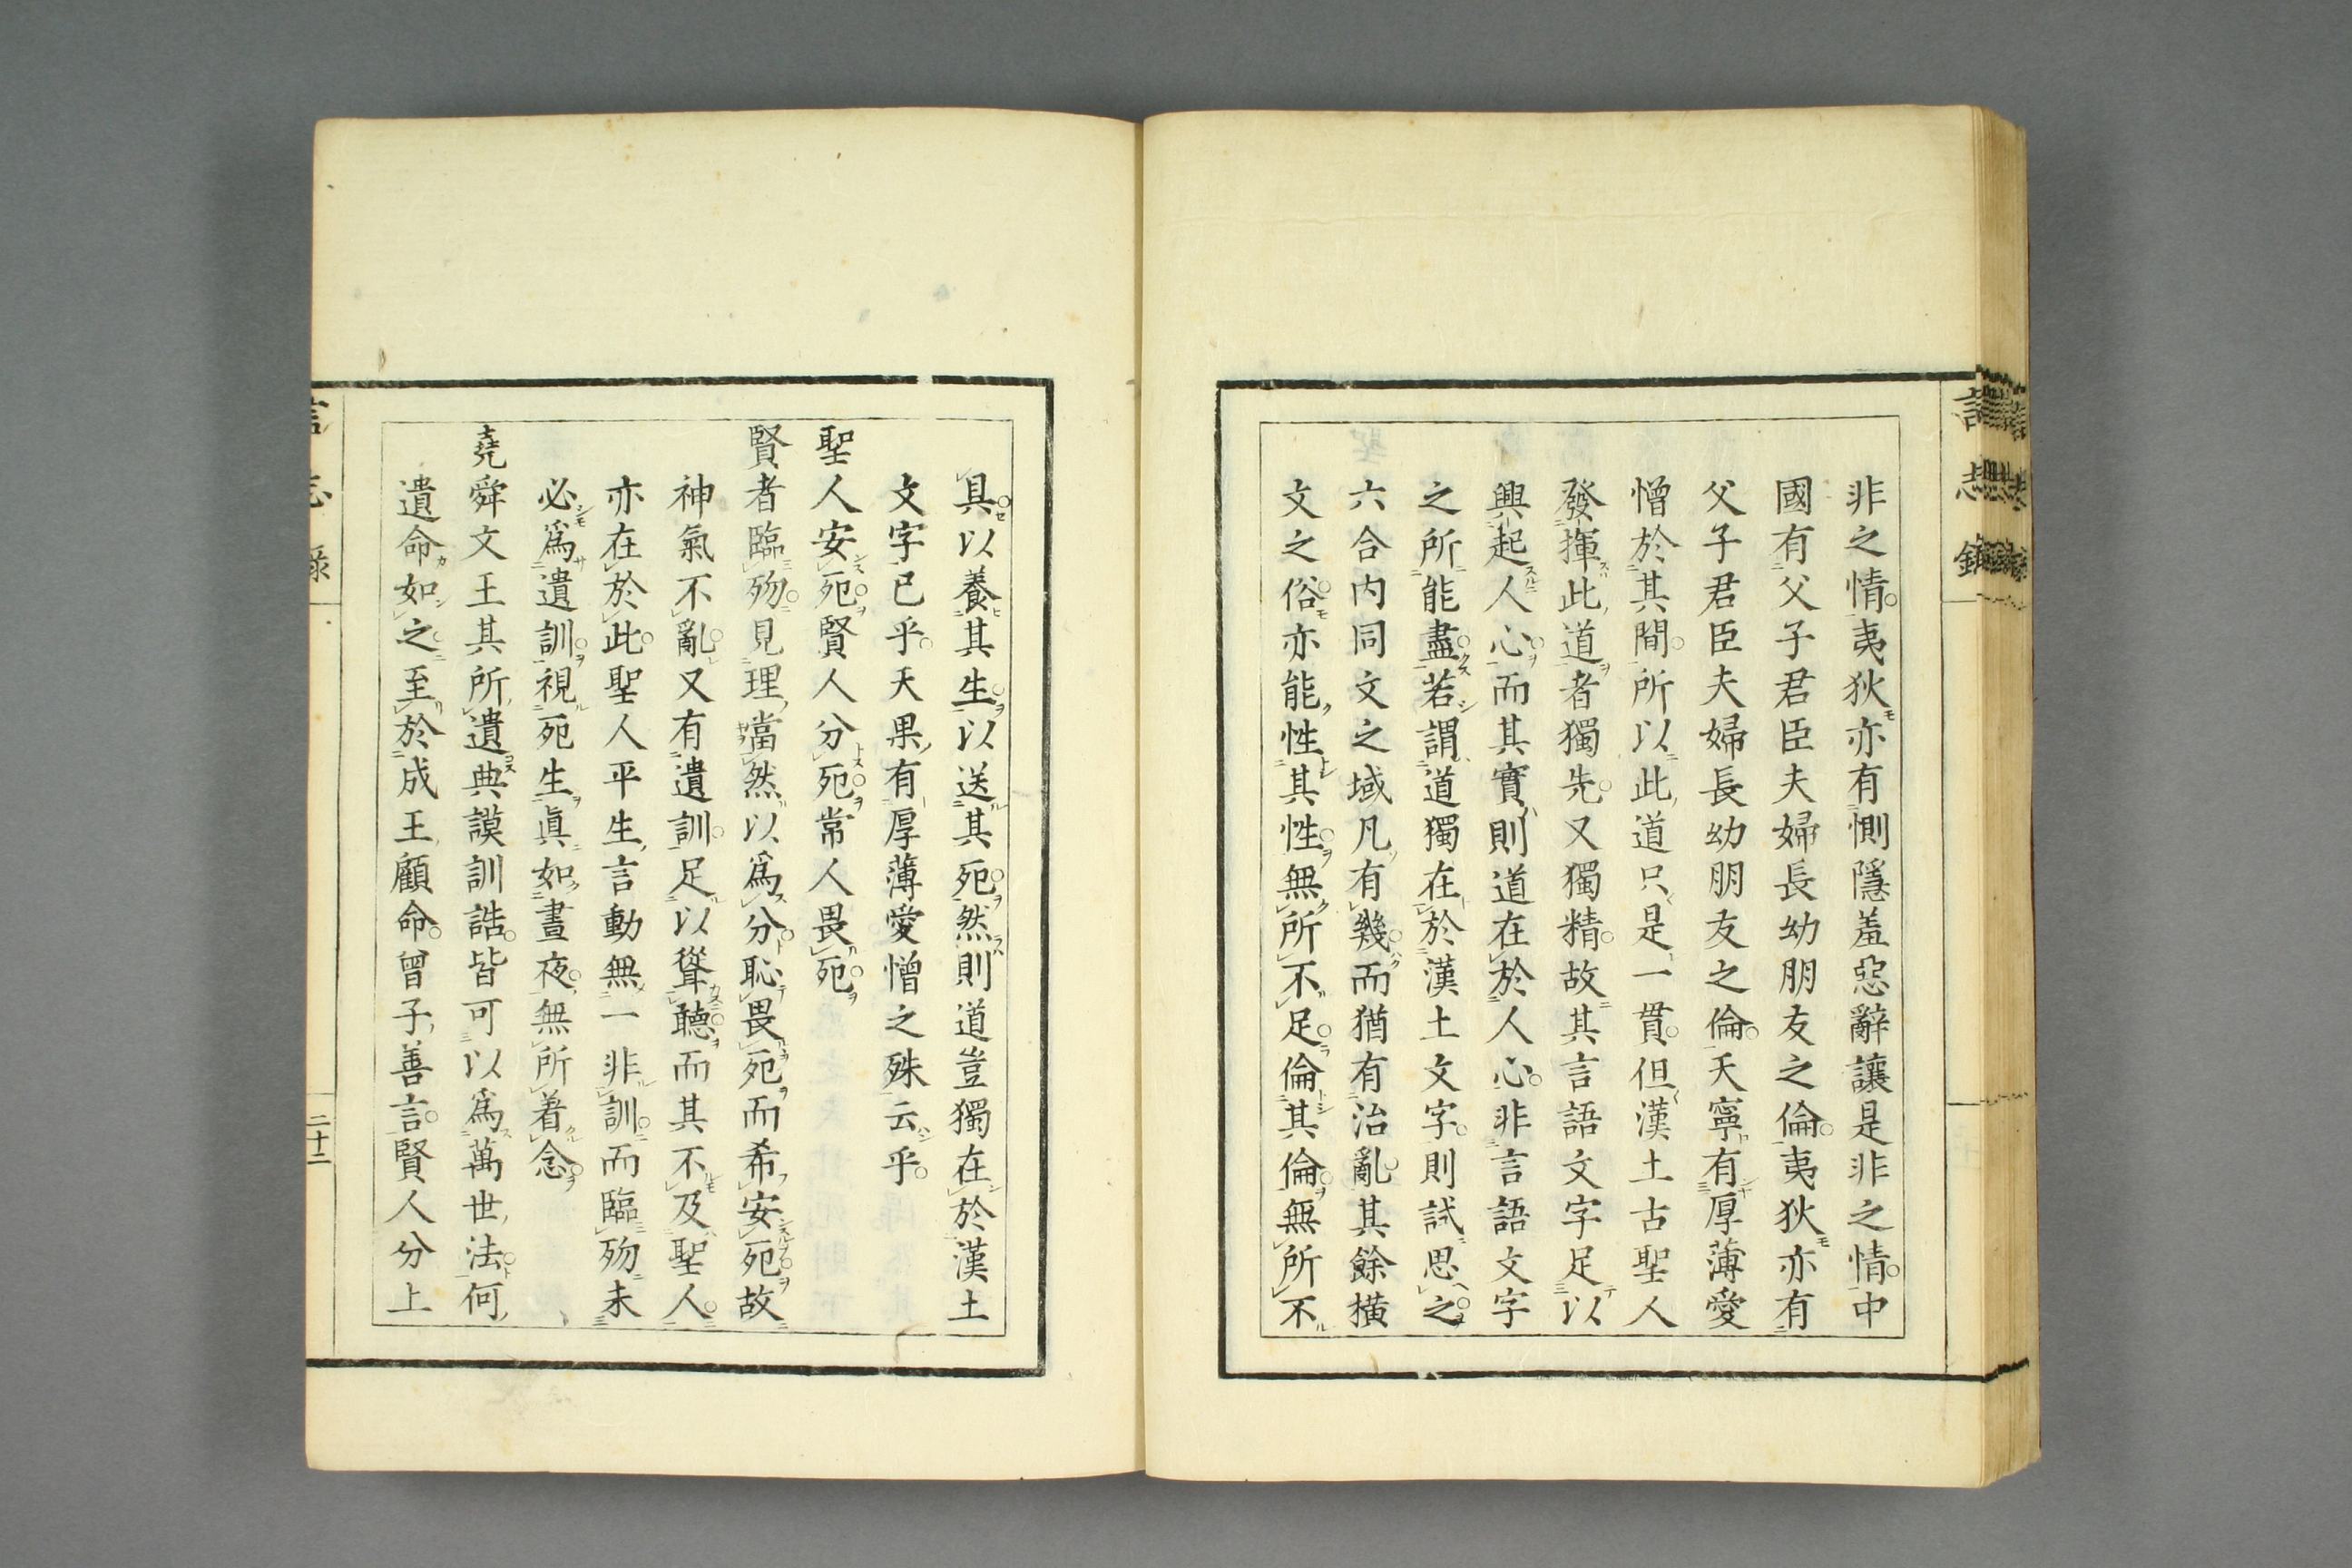 言志録
非之情。夷狄亦有惻隱羞惡辭讓是非之情。中
國有父子君臣夫婦長幼朋友之倫。夷狄亦有
父子君臣夫婦長幼朋友之倫。天寧有厚薄愛
憎於其間。所以此道只是一貫。但漢土古聖人
發揮此道者獨先。又獨精。故其言語文字足以
興起人心。而其實則道在於人心。非言語文字
之所能盡。若謂道獨在於漢土文字。則試思之。
六合内同文之域。凡有幾。而猶有治亂。其餘橫
文之俗。亦能性其性。無所不足。倫其倫。無所不
具。以養其生。以送其死。然則道豈獨在於漢土
文字已乎。天果有厚薄愛憎之殊云乎。
聖人安死。賢人分死。常人畏死。
賢者臨歾。見理當然。以爲分。恥畏死。而希安死。故
神氣不亂。又有遺訓。足以聳聽。而其不及聖人。
亦在於此。聖人平生言動無一非訓。而臨歾未
必爲遺訓。視死生眞如晝夜。無所着念。
堯舜文王其所遺典謨訓誥。皆可以爲萬世法。何
遺命如之。至於成王顧命。曾子善言。賢人分上
言志録
二十二